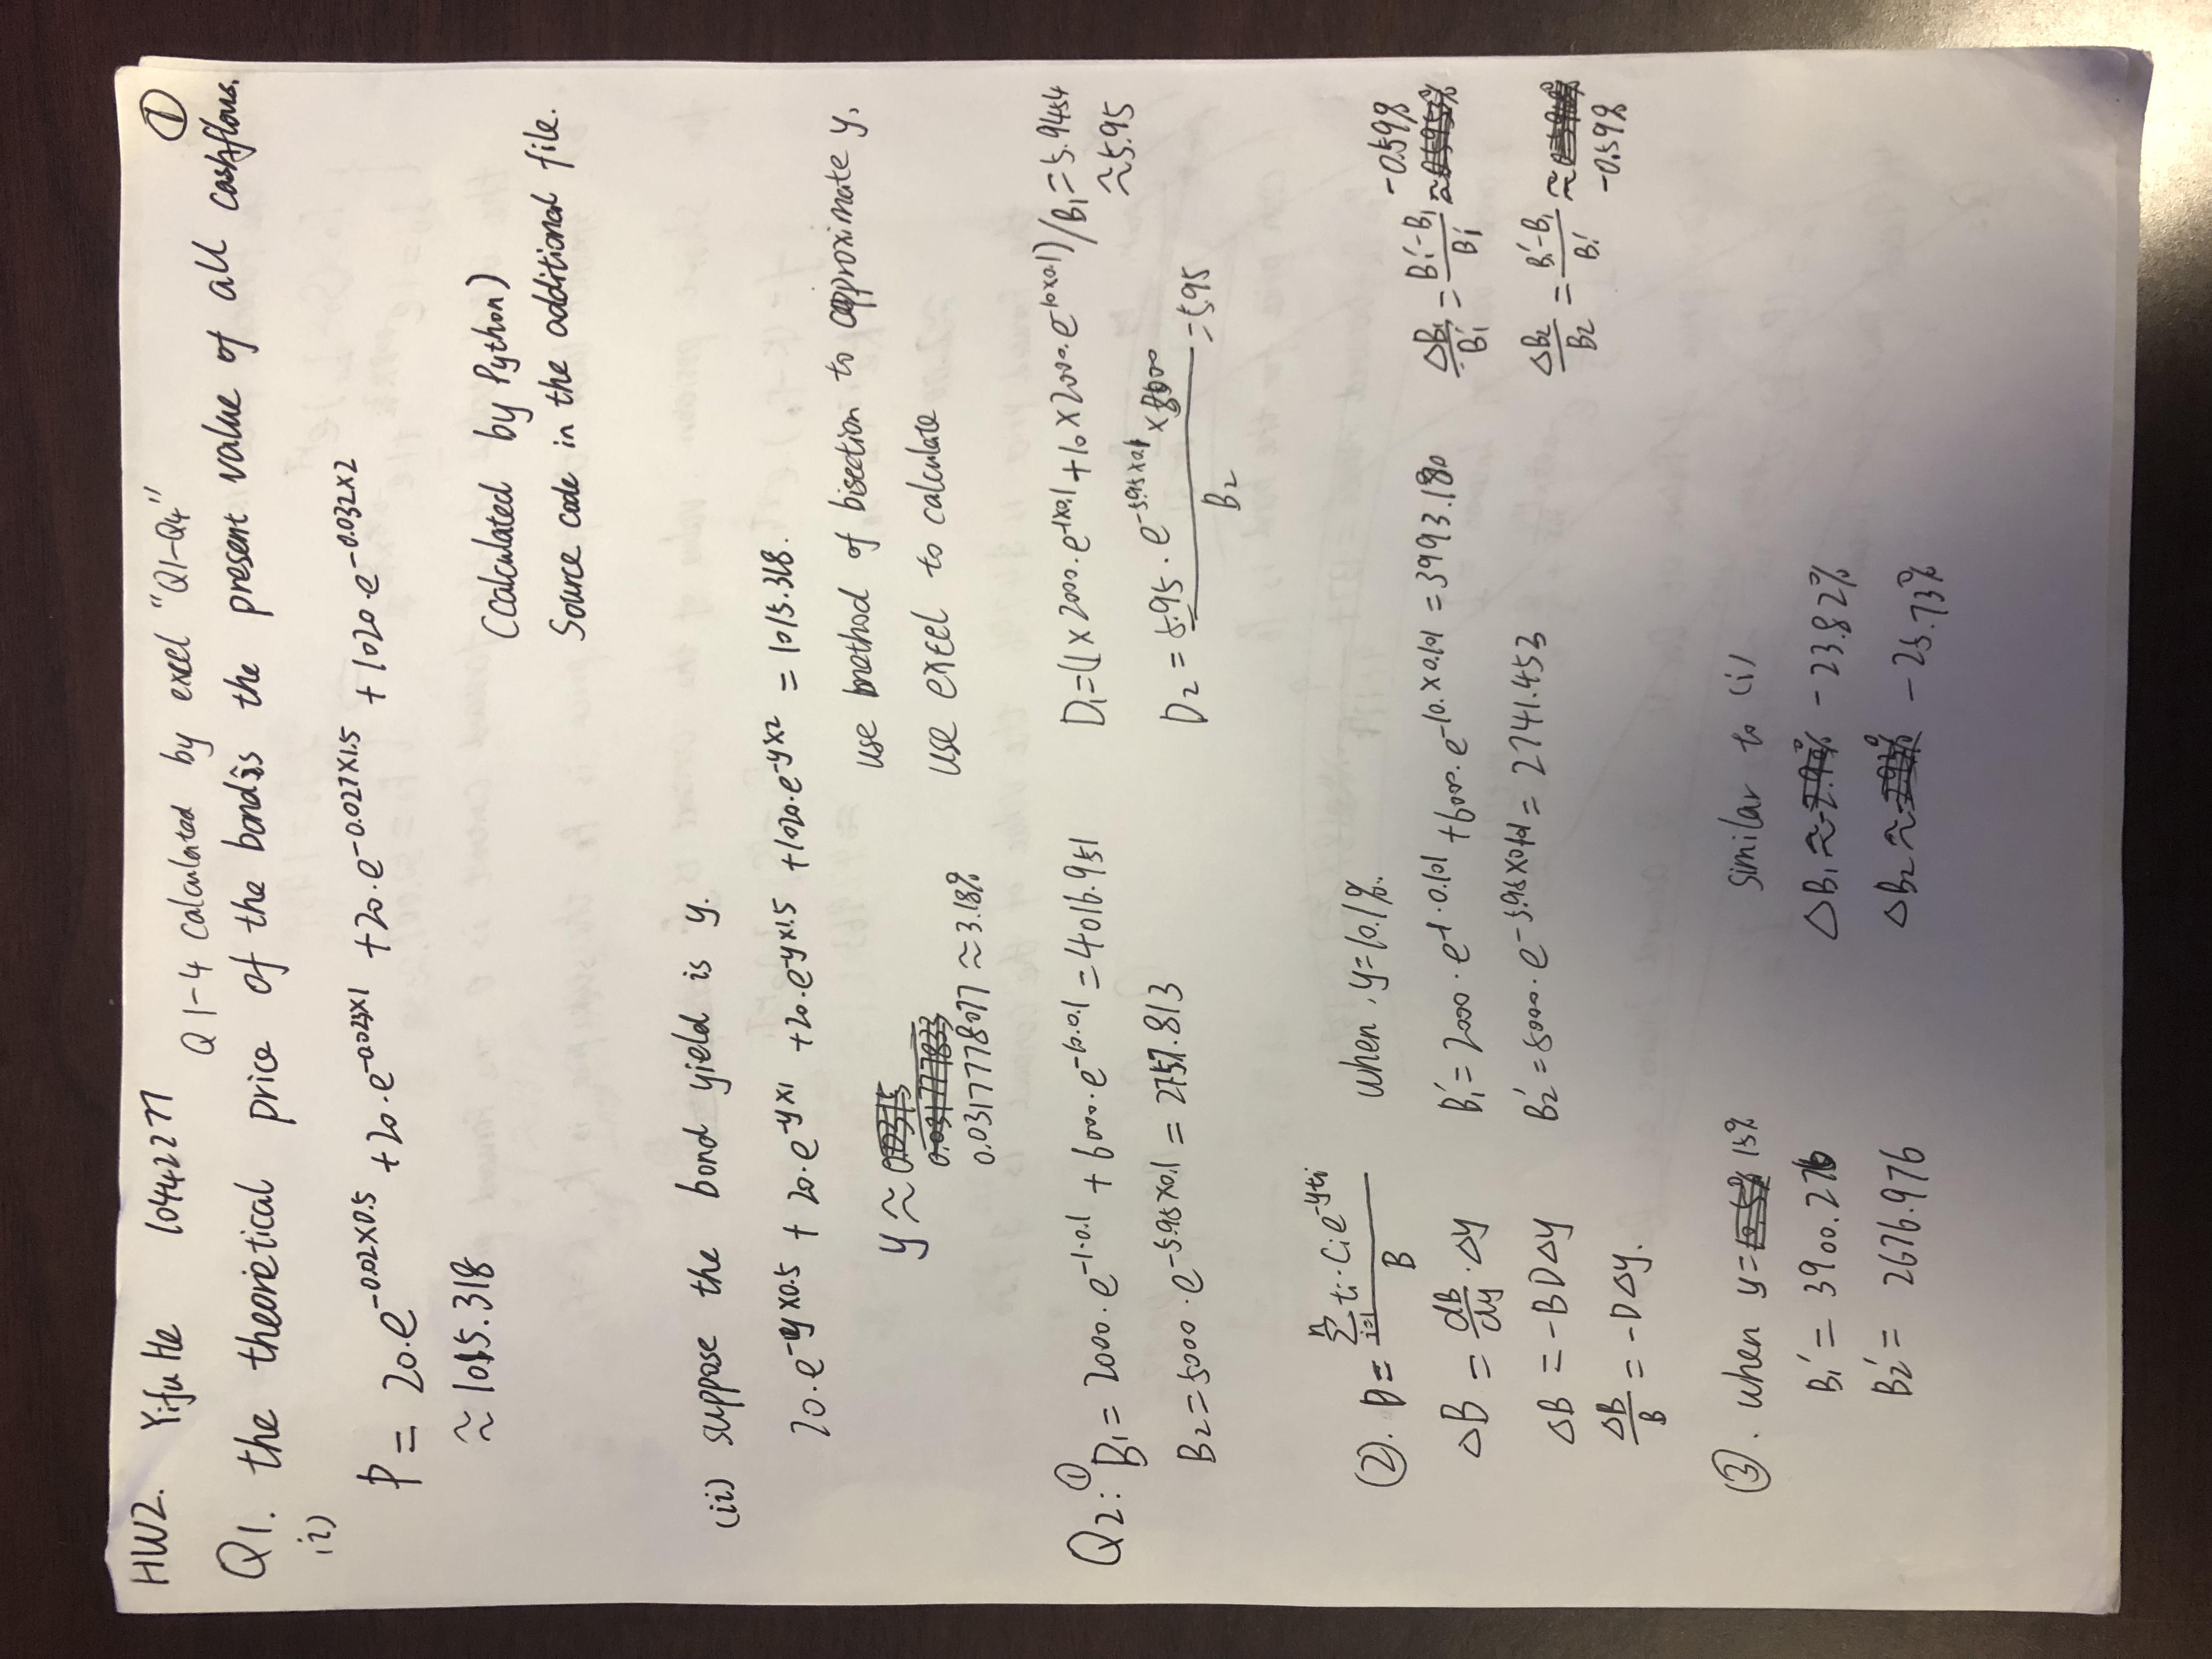 HW2. Yifu He 10442277 ①
Q1-4 Calculated by excel "Q1-Q4"
Q1. the theoretical price of the bond is the present value of all cashflows.
(i)
P = 20·e^{-0.02×0.5} + 20·e^{-0.023×1} + 20·e^{-0.027×1.5} + 1020·e^{-0.032×2}
≈ 1015.318
(Calculated by Python)
Source code in the additional file.
(ii) suppose the bond yield is y.
20·e^{-y×0.5} + 20·e^{-y×1} + 20·e^{-y×1.5} + 1020·e^{-y×2} = 1015.318.
use method of bisection to approximate y,
y ≈ 0.0315
0.031777833
use excel to calculate
0.0317778077 ≈ 3.18%
Q2: ① B₁ = 2000·e^{-1·0.1} + 6000·e^{-10·0.1} = 4016.951
D₁ = (1×2000·e^{-1×0.1} + 10×2000·e^{-10×0.1})/B₁ = 5.9454
≈ 5.95
B₂ = 5000·e^{-5.95×0.1} = 2757.813
D₂ = \frac{5.95·e^{-5.95×0.1}×5000}{B₂} = 5.95
②. D = \frac{\sum_{i=1}^{n} ti·Cie^{-yti}}{B} when, y=10.1%.
ΔB = \frac{dB}{dy}·Δy
B₁' = 2000·e^{-1·0.101} + 6000·e^{-10.×0.101} = 3993.180
\frac{ΔB₁}{B₁'} = \frac{B₁'-B₁}{B₁'} ≈ -0.59%
ΔB = -BDΔy
B₂' = 5000·e^{-5.95×0.101} = 2741.453
\frac{ΔB₂}{B₂} = \frac{B₁'-B₁}{B!} ≈
-0.59%
\frac{ΔB}{B} = -DΔy.
③. when y= 10.5% 15% similar to (i)
B₁' = 3900.276 ΔB₁ ≈ -23.82%
B₂' = 2676.976 ΔB₂ ≈ -25.73%